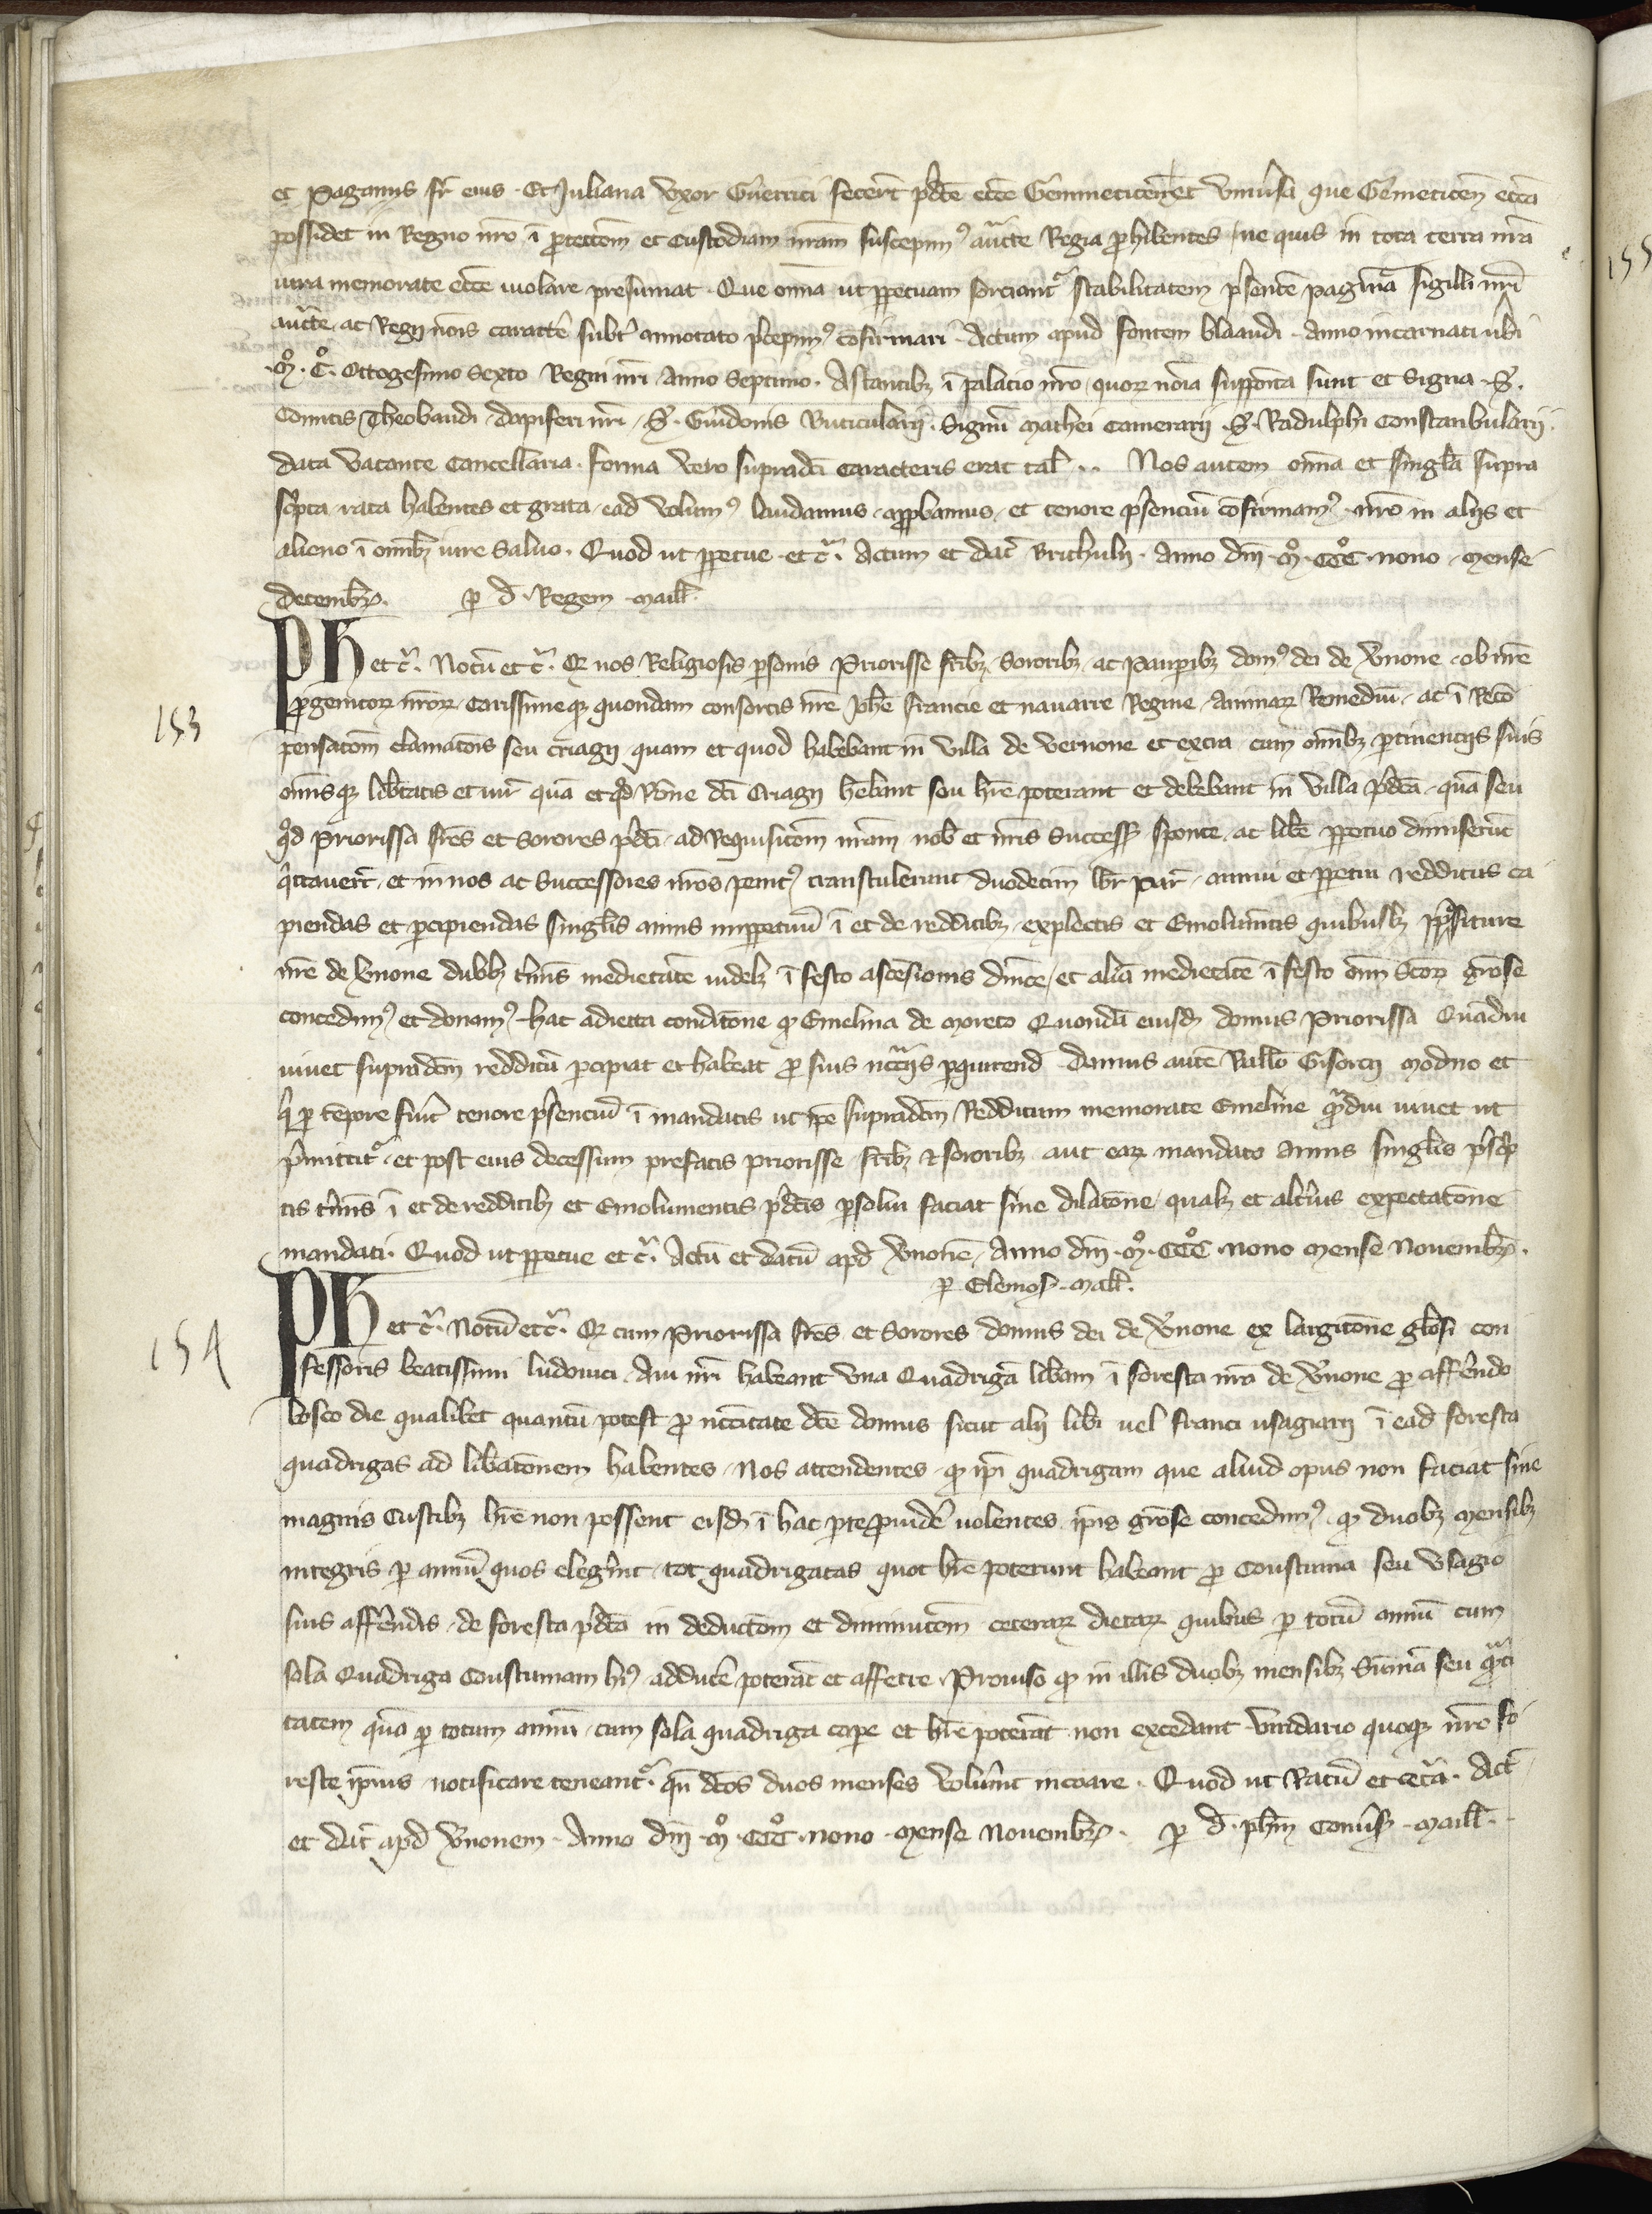 et Paganus fr̄ eius . Et Juliana vxor Guerrici fecer̄t p̄dc̄e ecc̄e Gemmeticen̄ Et vniuersa que Gemeticen̄ ecc̄a
possidet in Regno nr̄o ī protectōm et custodiam nr̄am suscepim⁹ auctt̄e Regia prohibentes ne quis in tota terra nr̄a
iura memorate ecc̄e uiolare presumat . Que om̄ia ut ꝑpetuam sorciant᷑ stabilitatem p̄sentē paginā sigilli nr̄i
auctt̄e ac Regij nōis caractē subt̾ annotato p̄cepim⁹ cōfirmari . Actum apud fontem blaaudi . Anno incarnati ūbi
.Mͦ. Cͦ. octogesimo sexto Regni nr̄i Anno Septimo . Astantibꝫ ī palacio nr̄o quoꝝ nōia supposita sunt et signa . S̄.
Comitis Theobaudi dapiferi nr̄i . S̄. Guidonis Buticularij . Signū Mathei camerarij . S̄. Radulphi Constanbularij .
data vacante cancellaria . forma vero supradc̄i caracteris erat tal̄ .. Nos autem om̄ia et singl̄a supra
sc̄pta rata habentes et grata ead volum⁹ laudamus approbamus et tenore p̄senciū cōfirmam⁹ nr̄o in alijs et
alieno ī omībꝫ iure saluo . Quod ut ꝑpetue et c̄. Actum et dat̄ Brithulij . Anno dn̄i .Mͦ.CCCͦ. nono . mense
decembꝝ. ꝑ d̄. Regem . Maill̄.
Ph et c̄. Notū et c̄. Qꝫ nos Religiosis ꝑsonis Priorisse fr̄ibꝫ Sororibꝫ ac pauꝑibꝫ dom⁹ dei de Vnone . ob nr̄e
153
ꝓgenitoꝝ nr̄oꝝ carissimeqꝫ quondam consortis nr̄e Joh̄e francie et nauarre Regine Animaꝝ Remediū . ac ī Recō
pensatōm clamatōis seu criagij quam et quod habebant in villa de vernone et extra cum omībꝫ ꝑtinentijs suis
om̄isqꝫ lib̄tatis et iur̄ quā et qd̄ Rōne dc̄i criagij hēbant seu hr̄e poterant et debebant in villa p̄dc̄a . quā seu
qd̄ Priorissa fr̄es et Sorores p̄dc̄i . ad Requisitōm nr̄am nob̄ et nr̄is Success̄ sponte ac libē ꝑpetuo dimiserūt
q̄ttauer̄t . et in nos ac Successores nr̄os penit⁹ transtulerunt duodecim libr̄ par̄ . annui et ꝑpetui redditus ca
piendas et ꝑcipiendas singl̄is annis inꝑpetuū ī et de redditibꝫ explectis et Emolumtis quibuslꝫ ꝓpositure
nr̄e de Vnone duobꝫ t̄mis medietatē uidelꝫ ī festo ascēsionis dn̄ice et aliā medietatē ī festo om̄ sc̄oꝝ grōse
concedim⁹ et donam⁹ . hac adiecta conditōne qꝫ Emelina de moreto Quondā eiusdē domus Priorissa Quādiu
uiuet supradc̄m redditū ꝑcipiat et habeat ꝓ suis nēcc̄ijs ꝑquirend̄ . Damus autē Ballō Gisorcij modno et
q̄ ꝑ tēpore fuit tenore p̄senciū ī mandatis ut ip̄e supradc̄m Redditum memorate Emeline quādiu uiuet ut
p̄mittit᷑ . et post eius decessum prefatis priorisse fr̄ibꝫ et sororibꝫ aut eaꝝ mandato annis singl̄is p̄sc̄p
tis t̄mis ī et de redditibꝫ et Emolumentis p̄dc̄is ꝑsolui faciat sine dilatōne qualꝫ et alt̾ius expectatōne
mandati . Quod ut ꝑpetue et c̄. Actū et datū apd̄ Vnonē . Anno dn̄i .Mͦ.CCCͦ. nono mense Nouembꝝ .
ꝑ Elemos̄ . Maill̄.
Ph et c̄. Notū et c̄. Qꝫ cum Priorissa fr̄es et Sorores domus dei de Vnone ex largitōne gl̄osi con
154
fessoris beatissimi ludouici Aui nr̄i habeant vna Quadrigā lib̄am ī foresta nr̄a de Vnone ꝓ afferēdo
bosco die qualibet quantū potest ꝓ nēcc̄itate dc̄e domus sicut alij lib̄i uel franci usagiarij ī ead foresta
quadrigas ad lib̄atōnem habentes . Nos attendentes . qꝫ ip̄i quadrigam que aliud opus non faciat sine
magnis custibꝫ hr̄e non possent eisdē ī hac ꝑte ꝓuidē uolentes ip̄is grōse concedim⁹ . qꝫ duobꝫ mensibꝫ
integris ꝑ annū quos elegerīt tot quadrigatas quot hr̄e poterunt habeant ꝓ coustuma seu vsagio
suis afferēdis . de foresta p̄dc̄a in deductōm et diminutōm ceteraꝝ dietaꝝ quibus ꝑ totū annū cum
sola Quadriga coustumam h⁹ adducē poterāt et afferre . Prouiso qꝫ in illis duobꝫ mensibꝫ Summā seu quāti
tatem quā ꝑ totum annū . cum sola quadriga caꝑe et hr̄e poterāt non excedant . viridario quoqꝫ nr̄o fo
reste ip̄ius notificare teneant᷑ . qn̄ dc̄os duos menses voluerīt incoare . Quod ut Ratū et cetā . Act̄
et dat̄ apd̄ Vnonem . Anno dn̄i .Mͦ.CCCͦ. nono . mense Nouembꝝ . ꝑ d̄. ph̄m Conūs̄ . Maill̄.